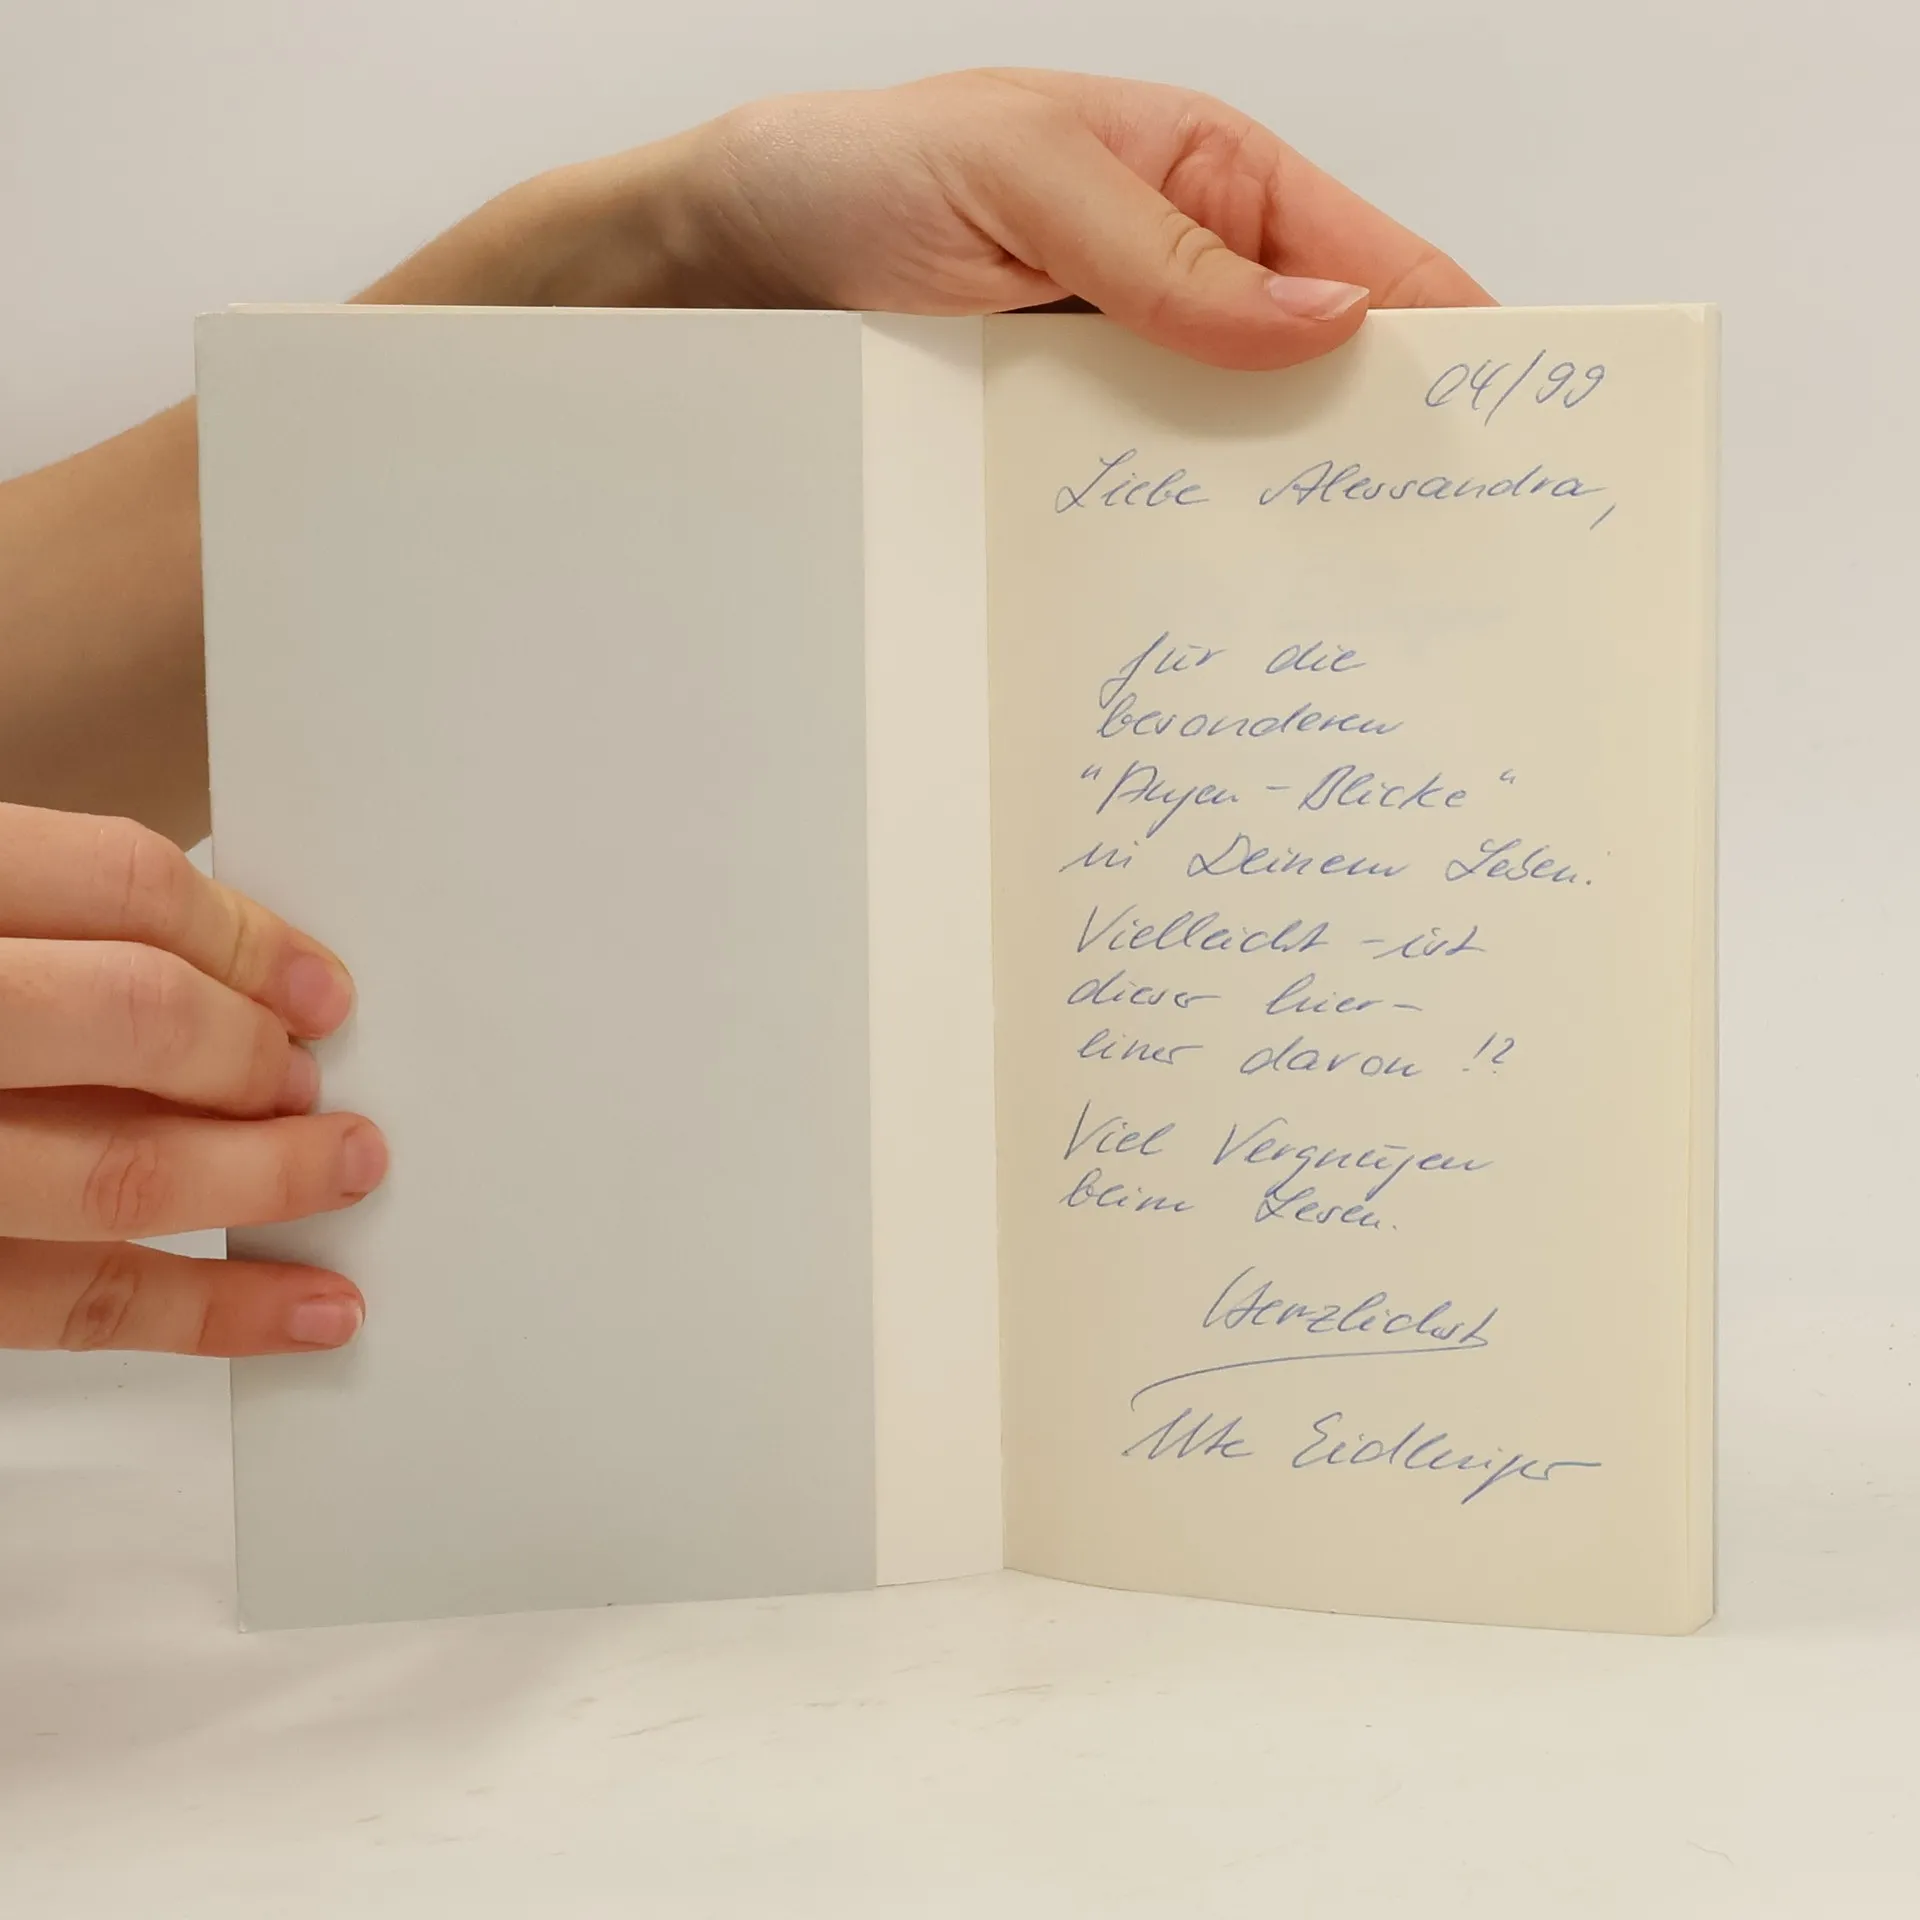 04/99
Liebe Alessandra,
für die
besonderen
"Augen-Blicke"
in Deinem Leben.
Vielleicht - ist
dieser hier -
einer davon !?
Viel Vergnügen
beim Lesen.
Herzlichst
Ute Eidlinger